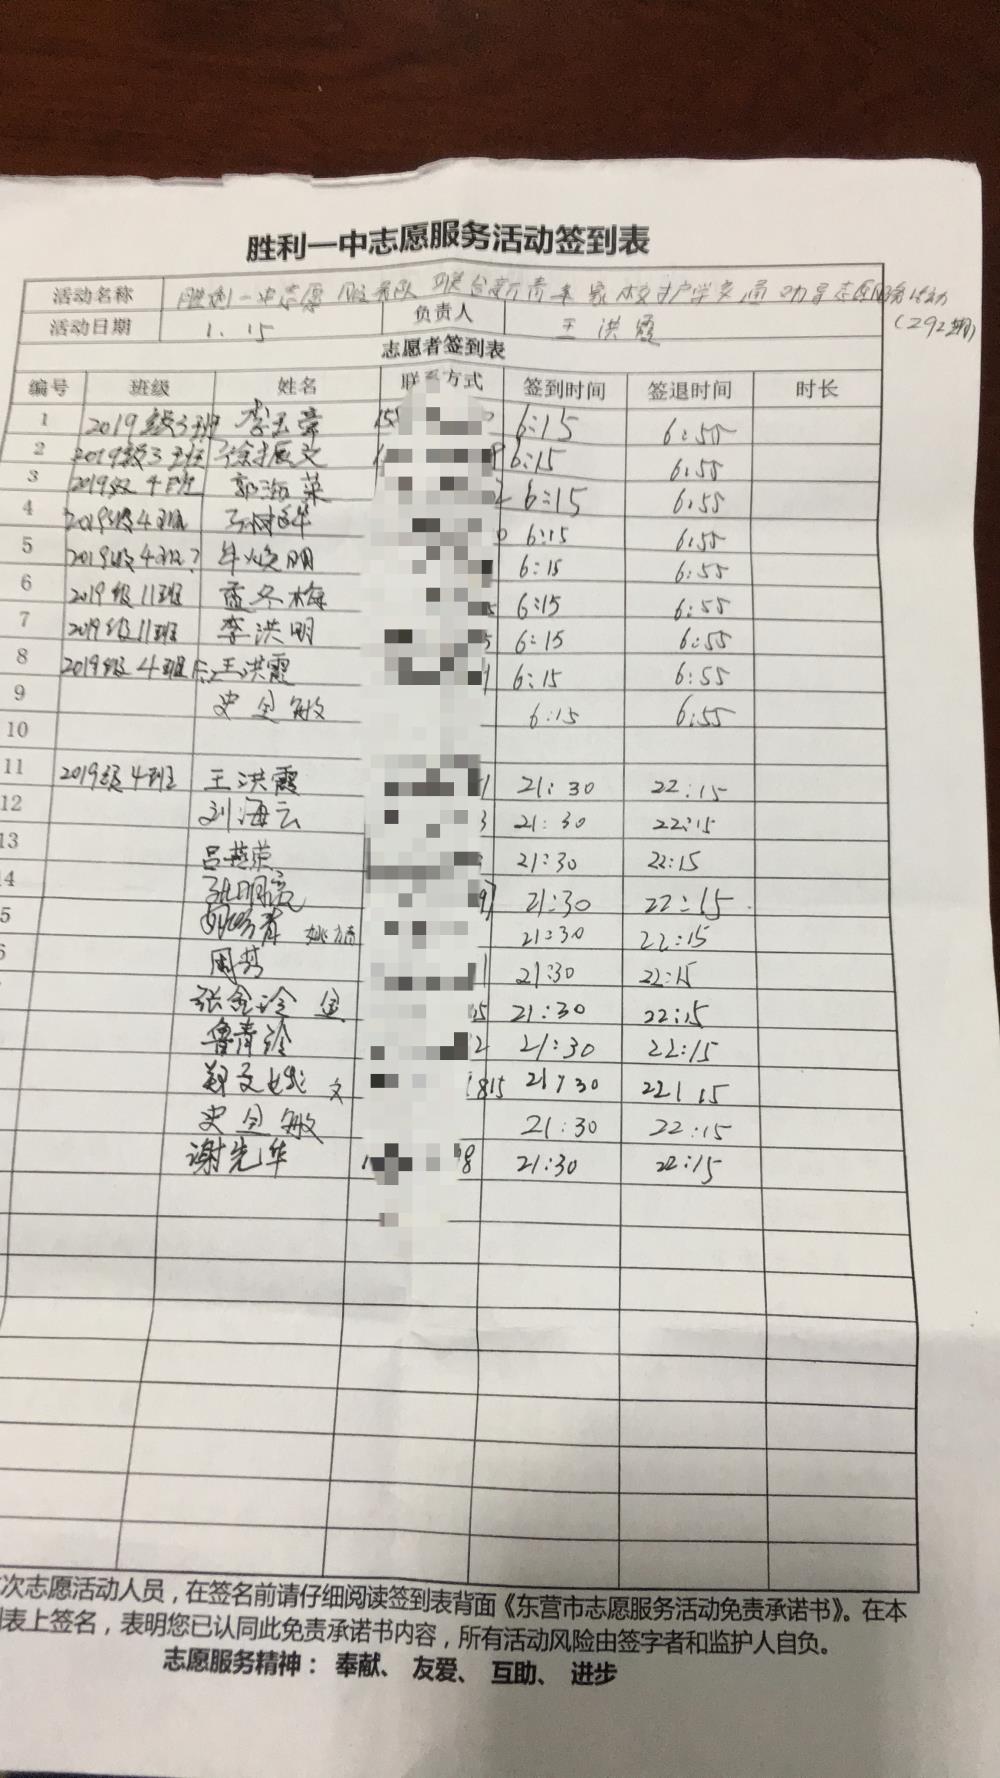 胜利一中志愿服务活动签到表
活动名称 胜利一中志愿服务队联合新青年家校护学交通劝导志愿服务活动
(292期)
活动日期 1.15 负责人 王洪霞
志愿者签到表
编号 班级 姓名 联系方式 签到时间 签退时间 时长
1 2019级3班 李玉豪 6:15 6:55
2 2019级3班 徐振文 6:15 6:55
3 2019级4班 郭海英 6:15 6:55
4 2019级4班 6:15 6:55
5 2019级4班 牛焕明 6:15 6:55
6 2019级11班 孟冬梅 6:15 6:55
7 2019级11班 李洪明 6:15 6:55
8 2019级4班 王洪霞 6:15 6:55
9 史全敏 6:15 6:55
10
11 2019级4班 王洪霞 21:30 22:15
12 刘海云 3 21:30 22:15
13 吕燕荣 21:30 22:15
14 张明亮 21:30 22:15
5 姚方青 21:30 22:15
6 周芳 21:30 22:15
张金冷 金 21:30 22:15
鲁青玲 2 21:30 22:15
郑文 文 815 21:30 22:15
史全敏 21:30 22:15
谢先华 98 21:30 22:15
次志愿活动人员，在签名前请仔细阅读签到表背面《东营市志愿服务活动免责承诺书》。在本
到表上签名，表明您已认同此免责承诺书内容，所有活动风险由签字者和监护人自负。
志愿服务精神：奉献、友爱、互助、进步